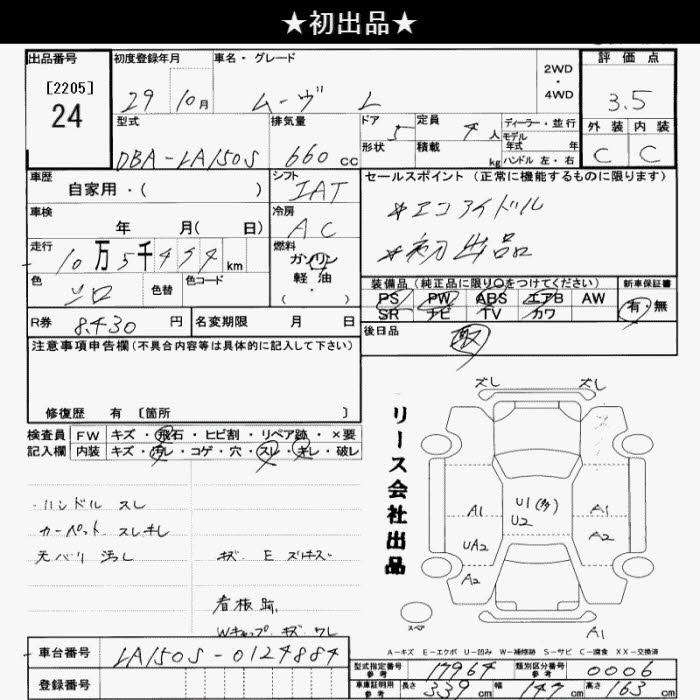 ★初出品★
出品番号
[2205]
24
初度登録年月
29 10月
車名・グレード
ムーヴ L
2WD
・
4WD
評価点
3.5
型式
DBA-LA150S
排気量
660cc
ドア 5
形状
定員 4人
積載 kg
ディーラー・並行
モデル
年式 年
ハンドル 左・右
外装 内装
C C
車歴
自家用・( )
シフト
IAT
セールスポイント (正常に機能するものに限ります)
*エコアイドル
*初出品
車検
年 月( 日)
冷房
AC
走行
10万5千494km
燃料
ガソリン
軽油
( ・ )
色
シロ
色替
色コード
装備品 (純正品に限り○をつけてください)
PS PW ABS エアB AW
SR ナビ TV カワ
新車保証書
有・無
R券 8,430円
名変期限 月 日
後日品
取
注意事項申告欄 (不具合内容等は具体的に記入して下さい)
修復歴 有 [箇所 ]
検査員
記入欄
FW キズ・飛石・ヒビ割・リペア跡・×要
内装 キズ・汚レ・コゲ・穴・スレ・キレ・破レ
・ハンドル スレ
カーペット スレキレ
天バリ 汚レ
キズ E ズリキズ
看板跡
Wキャップ キズ ワレ
リース会社出品
ズレ ズレ
A1 U1(多) A1
UA2 U2 A2
A2
スペア
A1
A-キズ E-エクボ U-凹み W-補修跡 S-サビ C-腐食 XX-交換済
車台番号
LA150S-0124884
登録番号
型式指定番号
参考
17964
類別区分番号
参考
0006
車庫証明用
参考
長さ 339cm 幅 147cm 高さ 163cm